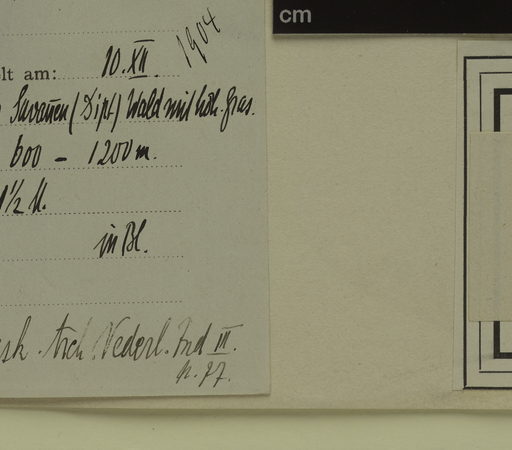 cm
1904
elt am: 10. XII.
Savannen (Dipt) Wald mit hoh. Gras.
600 - 1200 m.
1½ M.
in Bl.
Arch. Nederl. Ind III.
p. 77.